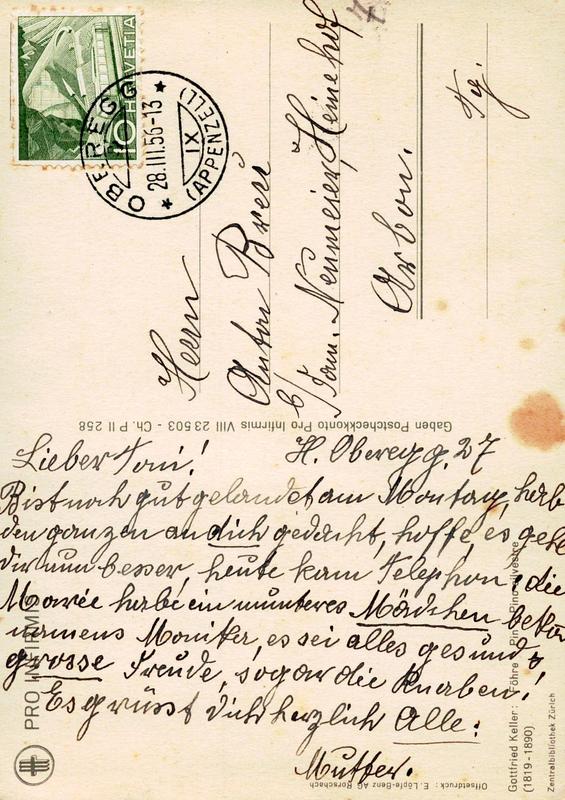 HELVETIA
10
OBEREGG
28.III.56-13
IX
(APPENZELL)
Herrn
Anton Breu
b/ Fam. Neumeier, Heinehof
Arbon.
Tg.
Gaben Postcheckkonto Pro Infirmis VIII 23 503 - Ch. P II 258
Lieber Toni! H. Oberegg, 27
Bist noch gut gelandet am Montag, hab
den ganzen an dich gedacht, hoffe, es gehe
dir nun besser, heute kam Telephon, die
Marie habe ein munteres Mädchen beko
namens Monika, es sei alles gesund &
grosse Freude, sogar die Knaben!
Es grüsst dich herzlich Alle:
Mutter.
PRO INFIRMIS
Gottfried Keller: Föhre Pin Pino silvestre
(1819-1890)
Zentralbibliothek Zürich
Offsetdruck: E. Löpfe-Benz AG Rorschach